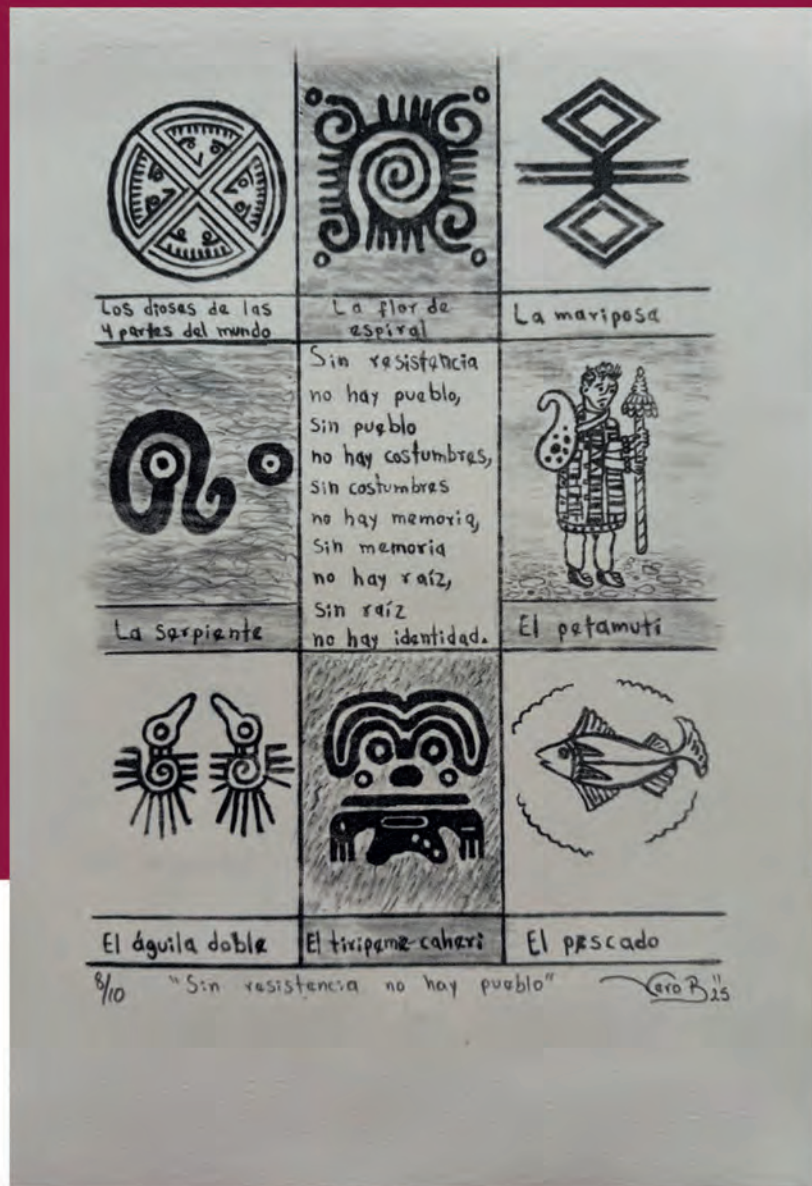 Los dioses de las
4 partes del mundo
La flor de
espiral
La mariposa
La serpiente
Sin resistencia
no hay pueblo,
Sin pueblo
no hay costumbres,
sin costumbres
no hay memoria,
Sin memoria
no hay raíz,
Sin raíz
no hay identidad.
El petamuti
El águila doble
El tiripeme-caheri
El pescado
8/10 "Sin resistencia no hay pueblo" Vero B "25